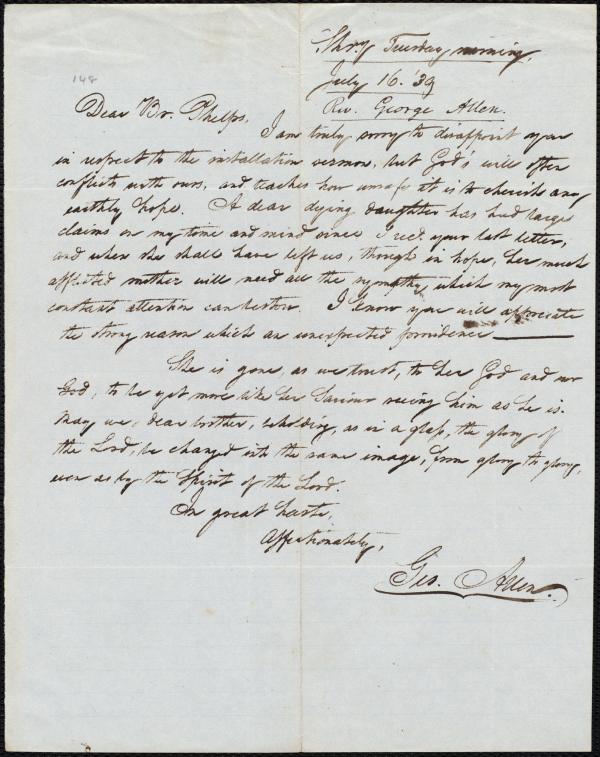 Shr'y Tuesday morning,
July 16. '39
148
Rev. George Allen.
Dear Br. Phelps,
I am truly sorry to disappoint you
in respect to the installation sermon, but God's will often
conflicts with ours, and teaches how unsafe it is to cherish any
earthly hope. A dear dying daughter has had large
claims on my time and mind since I recd. your last letter,
and when she shall have left us, though in hope, her much
afflicted mother will need all the sympathy which my most
constant attention can bestow. I know you will appreciate
the strong reason which an unexpected providence ———
She is gone, as we trust, to her God and our
God, to be yet more like her Saviour seeing him as he is.
May we, dear brother, beholding, as in a glass, the glory of
the Lord, be changed into the same image, from glory to glory,
even as by the Spirit of the Lord.
In great haste,
Affectionately,
Geo. Allen.